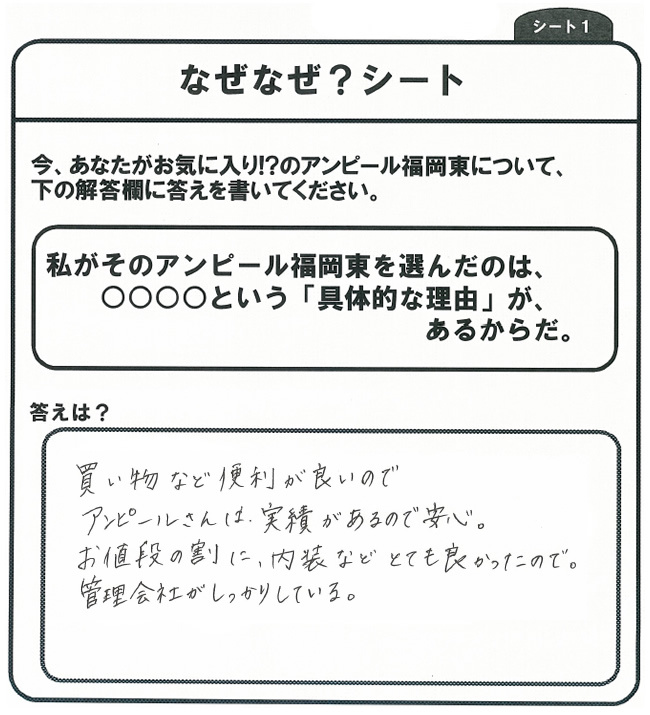 シート1
なぜなぜ？シート
今、あなたがお気に入り!?のアンピール福岡東について、
下の解答欄に答えを書いてください。
私がそのアンピール福岡東を選んだのは、
○○○○という「具体的な理由」が、
あるからだ。
答えは？
買い物など便利が良いので
アンピールさんは、実績があるので安心。
お値段の割に、内装などとても良かったので。
管理会社がしっかりしている。